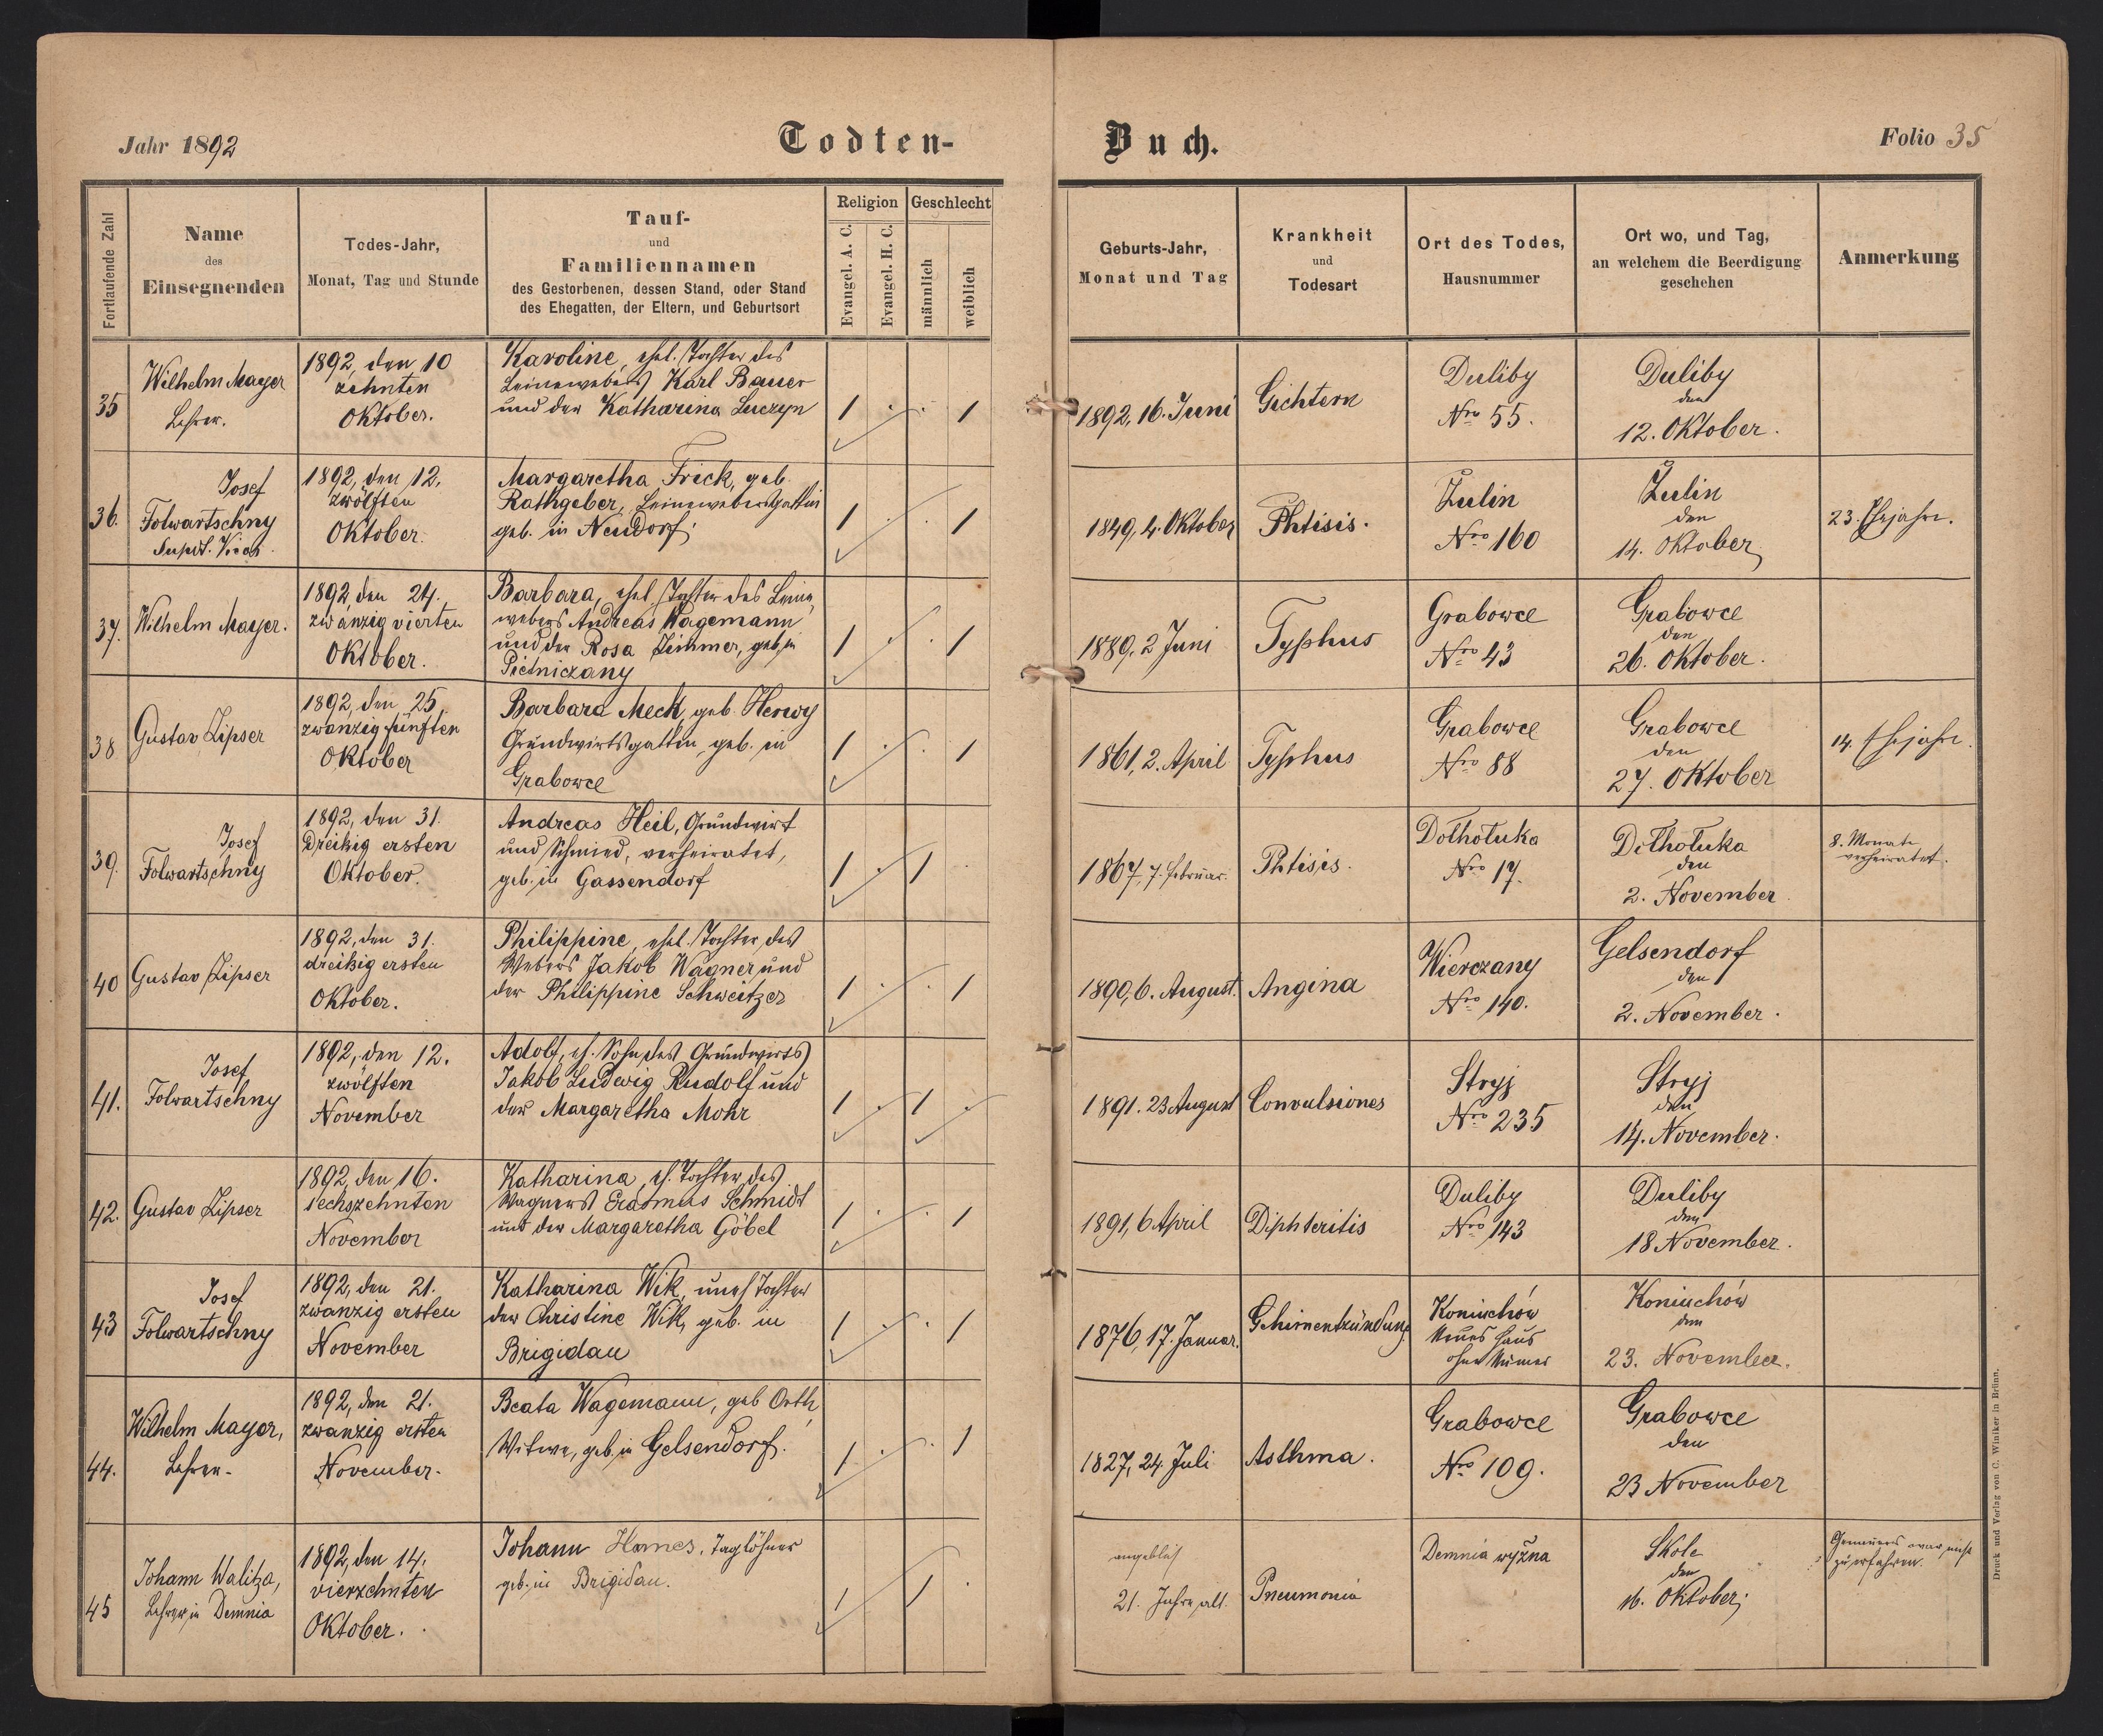 Jahr 1892
Todten-
Buch.
Folio 35
Fortlaufende Zahl
Name
des
Einsegnenden
Todes-Jahr,
Monat, Tag und Stunde
Tauf-
und
Familiennamen
des Gestorbenen, dessen Stand, oder Stand
des Ehegatten, der Eltern, und Geburtsort
Religion
Evangel. A. C.
Evangel. H. C.
Geschlecht
männlich
weiblich
Geburts-Jahr,
Monat und Tag
Krankheit
und
Todesart
Ort des Todes,
Hausnummer
Ort wo, und Tag,
an welchem die Beerdigung
geschehen
Anmerkung
35
Wilhelm Mayer
Lehrer.
1892, den 10
zehnten
Oktober.
Karoline, ehel. Tochter des
Leinewebers Karl Bauer
und der Katharina Luczyn
1 . . 1
1892, 16. Juni
Gichtern
Duliby
Nro 55.
Duliby
den
12. Oktober.
36.
Josef
Folwartschny
Supdt. Vicar.
1892, den 12.
zwölften
Oktober.
Margaretha Frick, geb.
Rathgeber, Leinewebersgattin
geb. in Neudorf.
1 . . 1
1849, 4. Oktober
Phtisis.
Zulin
Nro 160
Zulin
den
14. Oktober
23. Ehejahre.
37.
Wilhelm Mayer.
1892, den 24.
zwanzig vierten
Oktober.
Barbara, ehel Tochter des Leine
webers Andreas Wagemann
und der Rosa Zimmer, geb. in
Pietniczany
1 . . 1
1889, 2 Juni
Typhus
Grabowce
Nro 43
Grabowce
den
26. Oktober.
38
Gustav Lipser
1892, den 25.
zwanzig fünften
Oktober
Barbara Meck, geb. Herwy
Grundwirtsgattin, geb. in
Grabowce
1 . . 1
1861, 2. April
Typhus
Grabowce
Nro 88
Grabowce
den
27. Oktober
14. Ehejahre.
39.
Josef
Folwartschny
1892, den 31.
Dreißig ersten
Oktober.
Andreas Heil, Grundwirt
und Schmied, verheiratet,
geb. in Gassendorf
1 . 1 .
1867, 7. Februar.
Phtisis.
Dolhotuka
Nro 17.
Dolhotuka
den
2. November
8. Monate
verheiratet.
40
Gustav Lipser
1892, den 31.
dreißig ersten
Oktober.
Philippine, ehel. Tochter des
Webers Jakob Wagner und
der Philippine Schweitzer
1 . . 1
1890, 6. August.
Angina
Wierczany
Nro 140.
Gelsendorf
den
2. November.
41.
Josef
Folwartschny
1892, den 12.
zwölften
November
Adolf, eh. Sohn des Grundwirts
Jakob Ludewig Rudolf und
der Margaretha Mohr
1 . 1 .
1891. 23 August
Convulsiones
Stryj
Nro 235
Stryj
den
14. November.
42.
Gustav Lipser
1892, den 16.
sechszehnten
November
Katharina, eh. Tochter des
Wagners Erasmus Schmidt
und der Margaretha Göbel
1 . . 1
1891, 6 April
Diphteritis
Duliby
Nro 143
Duliby
den
18 November.
43
Josef
Folwartschny
1892, den 21.
zwanzig ersten
November
Katharina Wik, uneh Tochter
der Christine Wik, geb. in
Brigidau
1 . . 1
1876, 17. Januar.
Gehirnentzündung
Koniuchów
Neues Haus
ohne Numer
Koniuchów
den
23. November.
44.
Wilhelm Mayer,
Lehrer.
1892, den 21.
zwanzig ersten
November.
Beata Wagemann, geb Orth
Witwe, geb. in Gelsendorf.
1 . . 1
1827, 24. Juli
Asthma.
Grabowce
Nro 109.
Grabowce
den
23 November
45
Johann Walitza,
Lehrer, in Demnia
1892, den 14.
vierzehnten
Oktober.
Johann Hames, Taglöhner
geb. in Brigidau.
1 1 .
angeblich
21. Jahre alt.
Pneumonia
Demnia wyżna
Skole
den
16. Oktober.
Genaueres war nicht
zu erfahren.
Druck und Verlag von C. Winiker in Brünn.